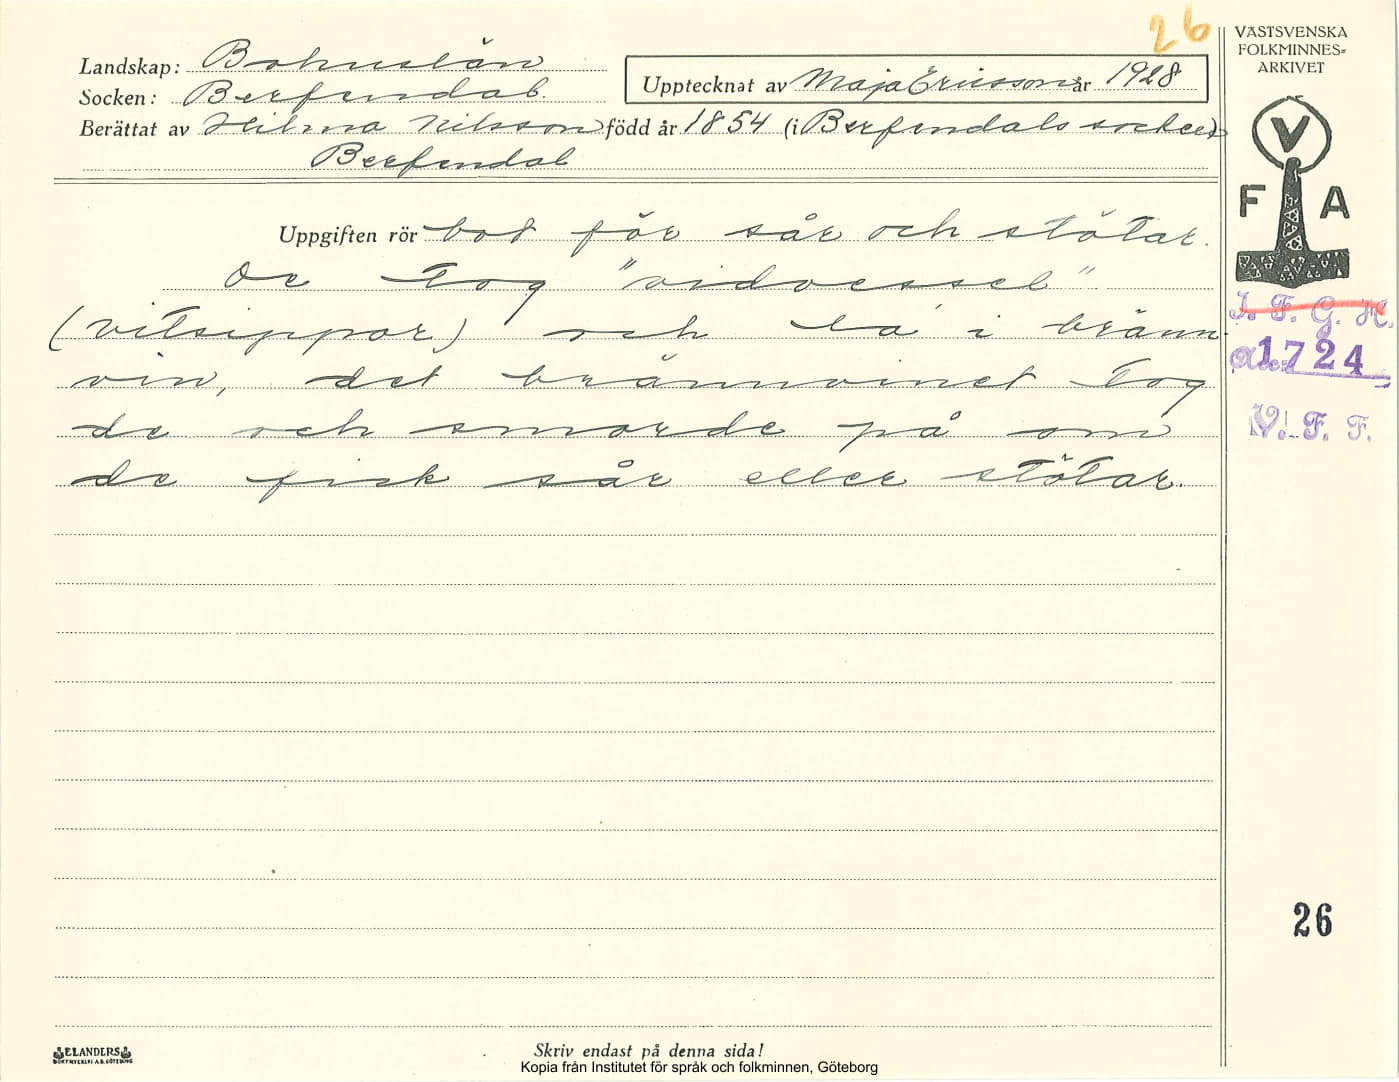 26
VÄSTSVENSKA
FOLKMINNES=
ARKIVET
Landskap: Bohuslän
Socken: Berfendal.
Upptecknat av Maja Ericsson år 1928
Berättat av Hilma Nilsson född år 1854 (i Berfendals socken)
Berfendal
V
F A
Uppgiften rör bot för sår och stötar.
De tog "vidvessel"
(vitsippor) och la i bränn-
vin, det brännvinet tog
de och smorde på om
de fick sår eller stötar.
I. F. G. H.
acc. 1724
V. F. F.
26
ELANDERS
BOKTRYCKERI A.B. GÖTEBORG
Skriv endast på denna sida!
Kopia från Institutet för språk och folkminnen, Göteborg